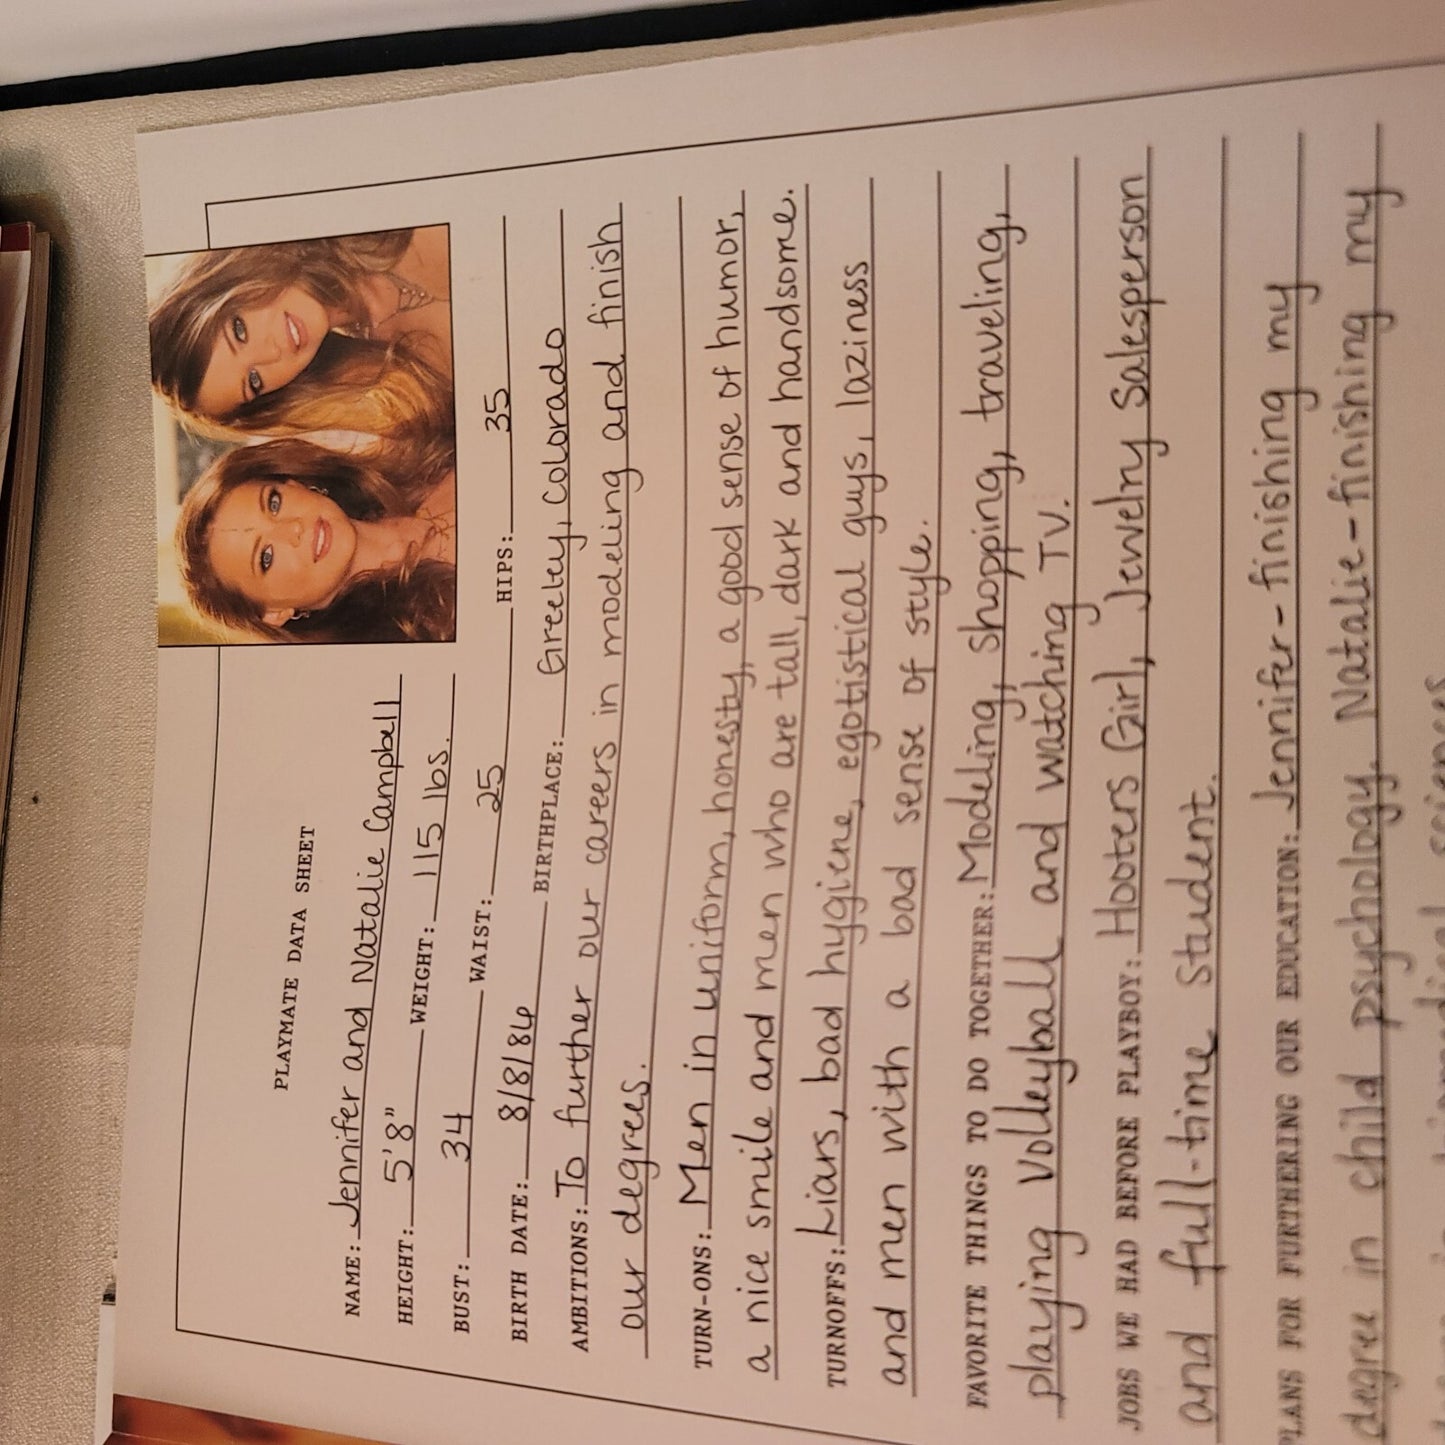 PLAYMATE DATA SHEET
NAME: Jennifer and Natalie Campbell
HEIGHT: 5'8" WEIGHT: 115 lbs.
BUST: 34 WAIST: 25 HIPS: 35
BIRTH DATE: 8/8/84 BIRTHPLACE: Greeley, Colorado
AMBITIONS: To further our careers in modeling and finish
our degrees.
TURN-ONS: Men in uniform, honesty, a good sense of humor,
a nice smile and men who are tall, dark and handsome.
TURNOFFS: Liars, bad hygiene, egotistical guys, laziness
and men with a bad sense of style.
FAVORITE THINGS TO DO TOGETHER: Modeling, shopping, traveling,
playing volleyball and watching TV.
JOBS WE HAD BEFORE PLAYBOY: Hooters Girl, Jewelry Salesperson
and full-time student.
PLANS FOR FURTHERING OUR EDUCATION: Jennifer-finishing my
degree in child psychology. Natalie-finishing my